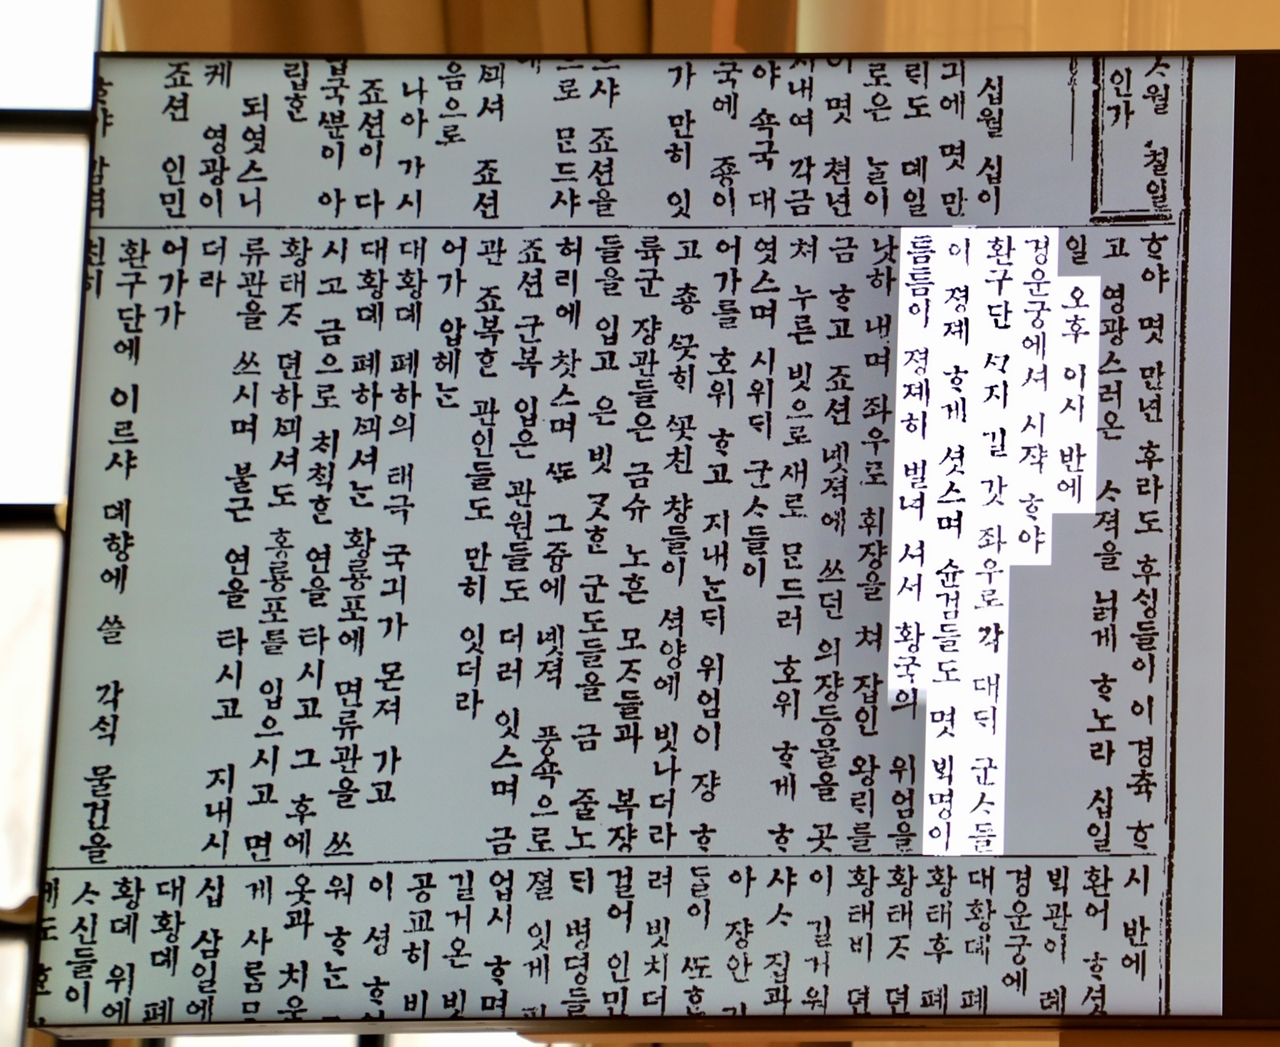 ᄉᆞ월 칠일
인가
십월 십이
긔에 몃 만
릭도 뎨일
로은 놀이
이 몃 쳔년
시내여 각금
야 쇽국 대
국에 죵이
가 만히 잇
으샤 죠션을
으로 문드샤
ᄭᅴ셔 죠션
음으로
나아 가시
죠션이 다
북ᄲᅮᆫ이 아
립ᄒᆞᆫ
되엿스니
케 영광이
죠션 인민
ᄒᆞ야 몃 만년 후라도 후ᄉᆡᆼ들이 이 경츅 ᄒᆞ
고 영광스러온 ᄉᆞ젹을 닑게 ᄒᆞ노라 십일
일 오후 이시 반에
경운궁에셔 시쟉 ᄒᆞ야
환구단 ᄭᆞ지 길 갓 좌우로 각 대ᄃᆡ 군ᄉᆞ들
이 졍졔 ᄒᆞ게 셧스며 슌검들도 몃 ᄇᆡᆨ명이
틈틈이 졍졔히 벌녀 셔서 황국의 위엄을
낫하 내며 좌우로 휘쟝을 쳐 잡인 왕ᄅᆡ를
금 ᄒᆞ고 죠션 녯젹에 쓰던 의쟝등물을 곳
쳐 누른 빗으로 새로 문드러 호위 ᄒᆞ게 ᄒᆞ
엿스며 시위ᄃᆡ 군ᄉᆞ들이
어가를 호위 ᄒᆞ고 지내ᄂᆞᆫᄃᆡ 위엄이 쟝 ᄒᆞ
고 춍 ᄭᅳᆺ히 ᄭᅩᆺ친 창들이 셕양에 빗나더라
륙군 쟝관들은 금슈 노흔 모ᄌᆞ들과 복쟝
들을 입고 은 빗 ᄀᆞᆺᄒᆞᆫ 군도들을 금 줄노
허리에 찻스며 ᄯᅩ 그즁에 녯젹 풍쇽으로
죠션 군복 입은 관원들도 더러 잇스며 금
관 죠복ᄒᆞᆫ 관인들도 만히 잇더라
어가 압헤ᄂᆞᆫ
대황뎨 폐하의 태극 국긔가 몬져 가고
대황뎨 폐하ᄭᅴ셔ᄂᆞᆫ 황룡포에 면류관을 쓰
시고 금으로 치쟉ᄒᆞᆫ 연을 타시고 그 후에
황태ᄌᆞ 뎐하ᄭᅴ셔도 홍룡포를 입으시고 면
류관을 쓰시며 불근 연을 타시고 지내시
더라
어가가
환구단에 이르샤 뎨향에 쓸 각식 물건을
친히
시 반에
환어 ᄒᆞ셧
ᄇᆡᆨ관이 례
경운궁에
대황뎨 폐
황태후 폐
황태ᄌᆞ 뎐
황태비 뎐
이 길거워
샤ᄉᆞ 집과
아 쟝안
들이 ᄯᅩᄒᆞᆫ
려 빗치 더
걸어 인민
ᄃᆡ 병뎡들
졀 잇게
업시 ᄒᆞ며
길거온 빗
공교히 비
이 셩
워 ᄒᆞᄂᆞᆫ
옷과 치운
게 사ᄅᆞᆷ
십 삼일에
대황뎨 폐
황뎨 위에
ᄉᆞ신들이